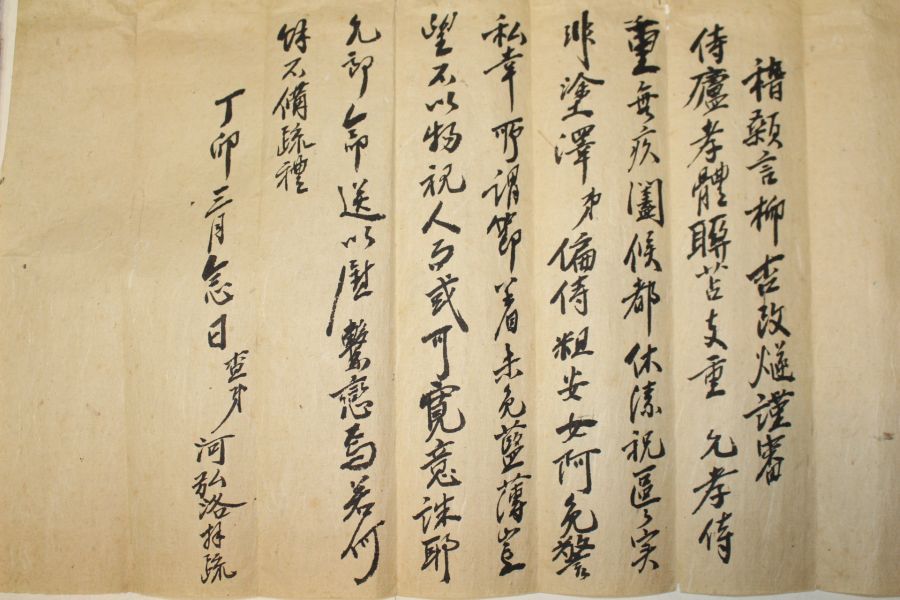 稽顙言柳杏改燧謹審
侍廬孝體聯苫支重 允孝侍
重無疾闔候都休溸祝區々实
非塗澤弟偏侍粗安女阿免警
私幸所謂節著未免藍薄豈
望不以物視人而或可寬意誅耶
允郎命送以慰繫戀焉若何
餘不備疏禮
丁卯三月念日
查弟 河弘洛拜疏